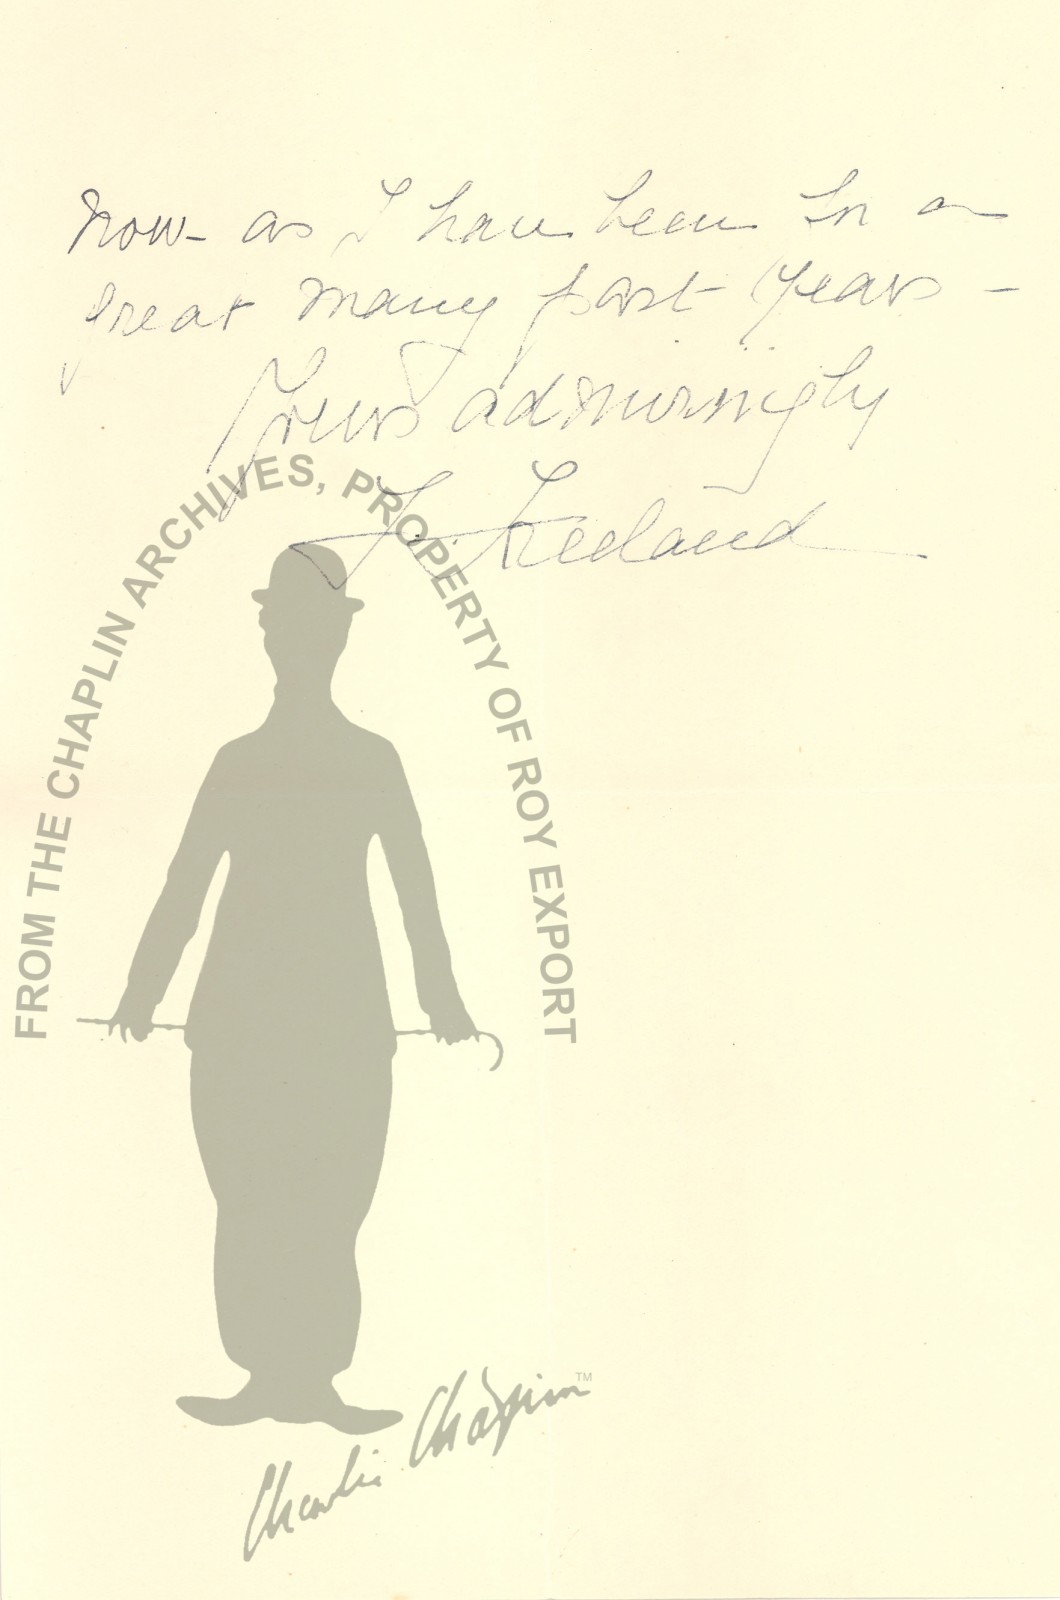 now – as I have been for a
great many past years –
Yours admiringly
FROM THE CHAPLIN ARCHIVES, PROPERTY OF ROY EXPORT
Charlie Chaplin TM